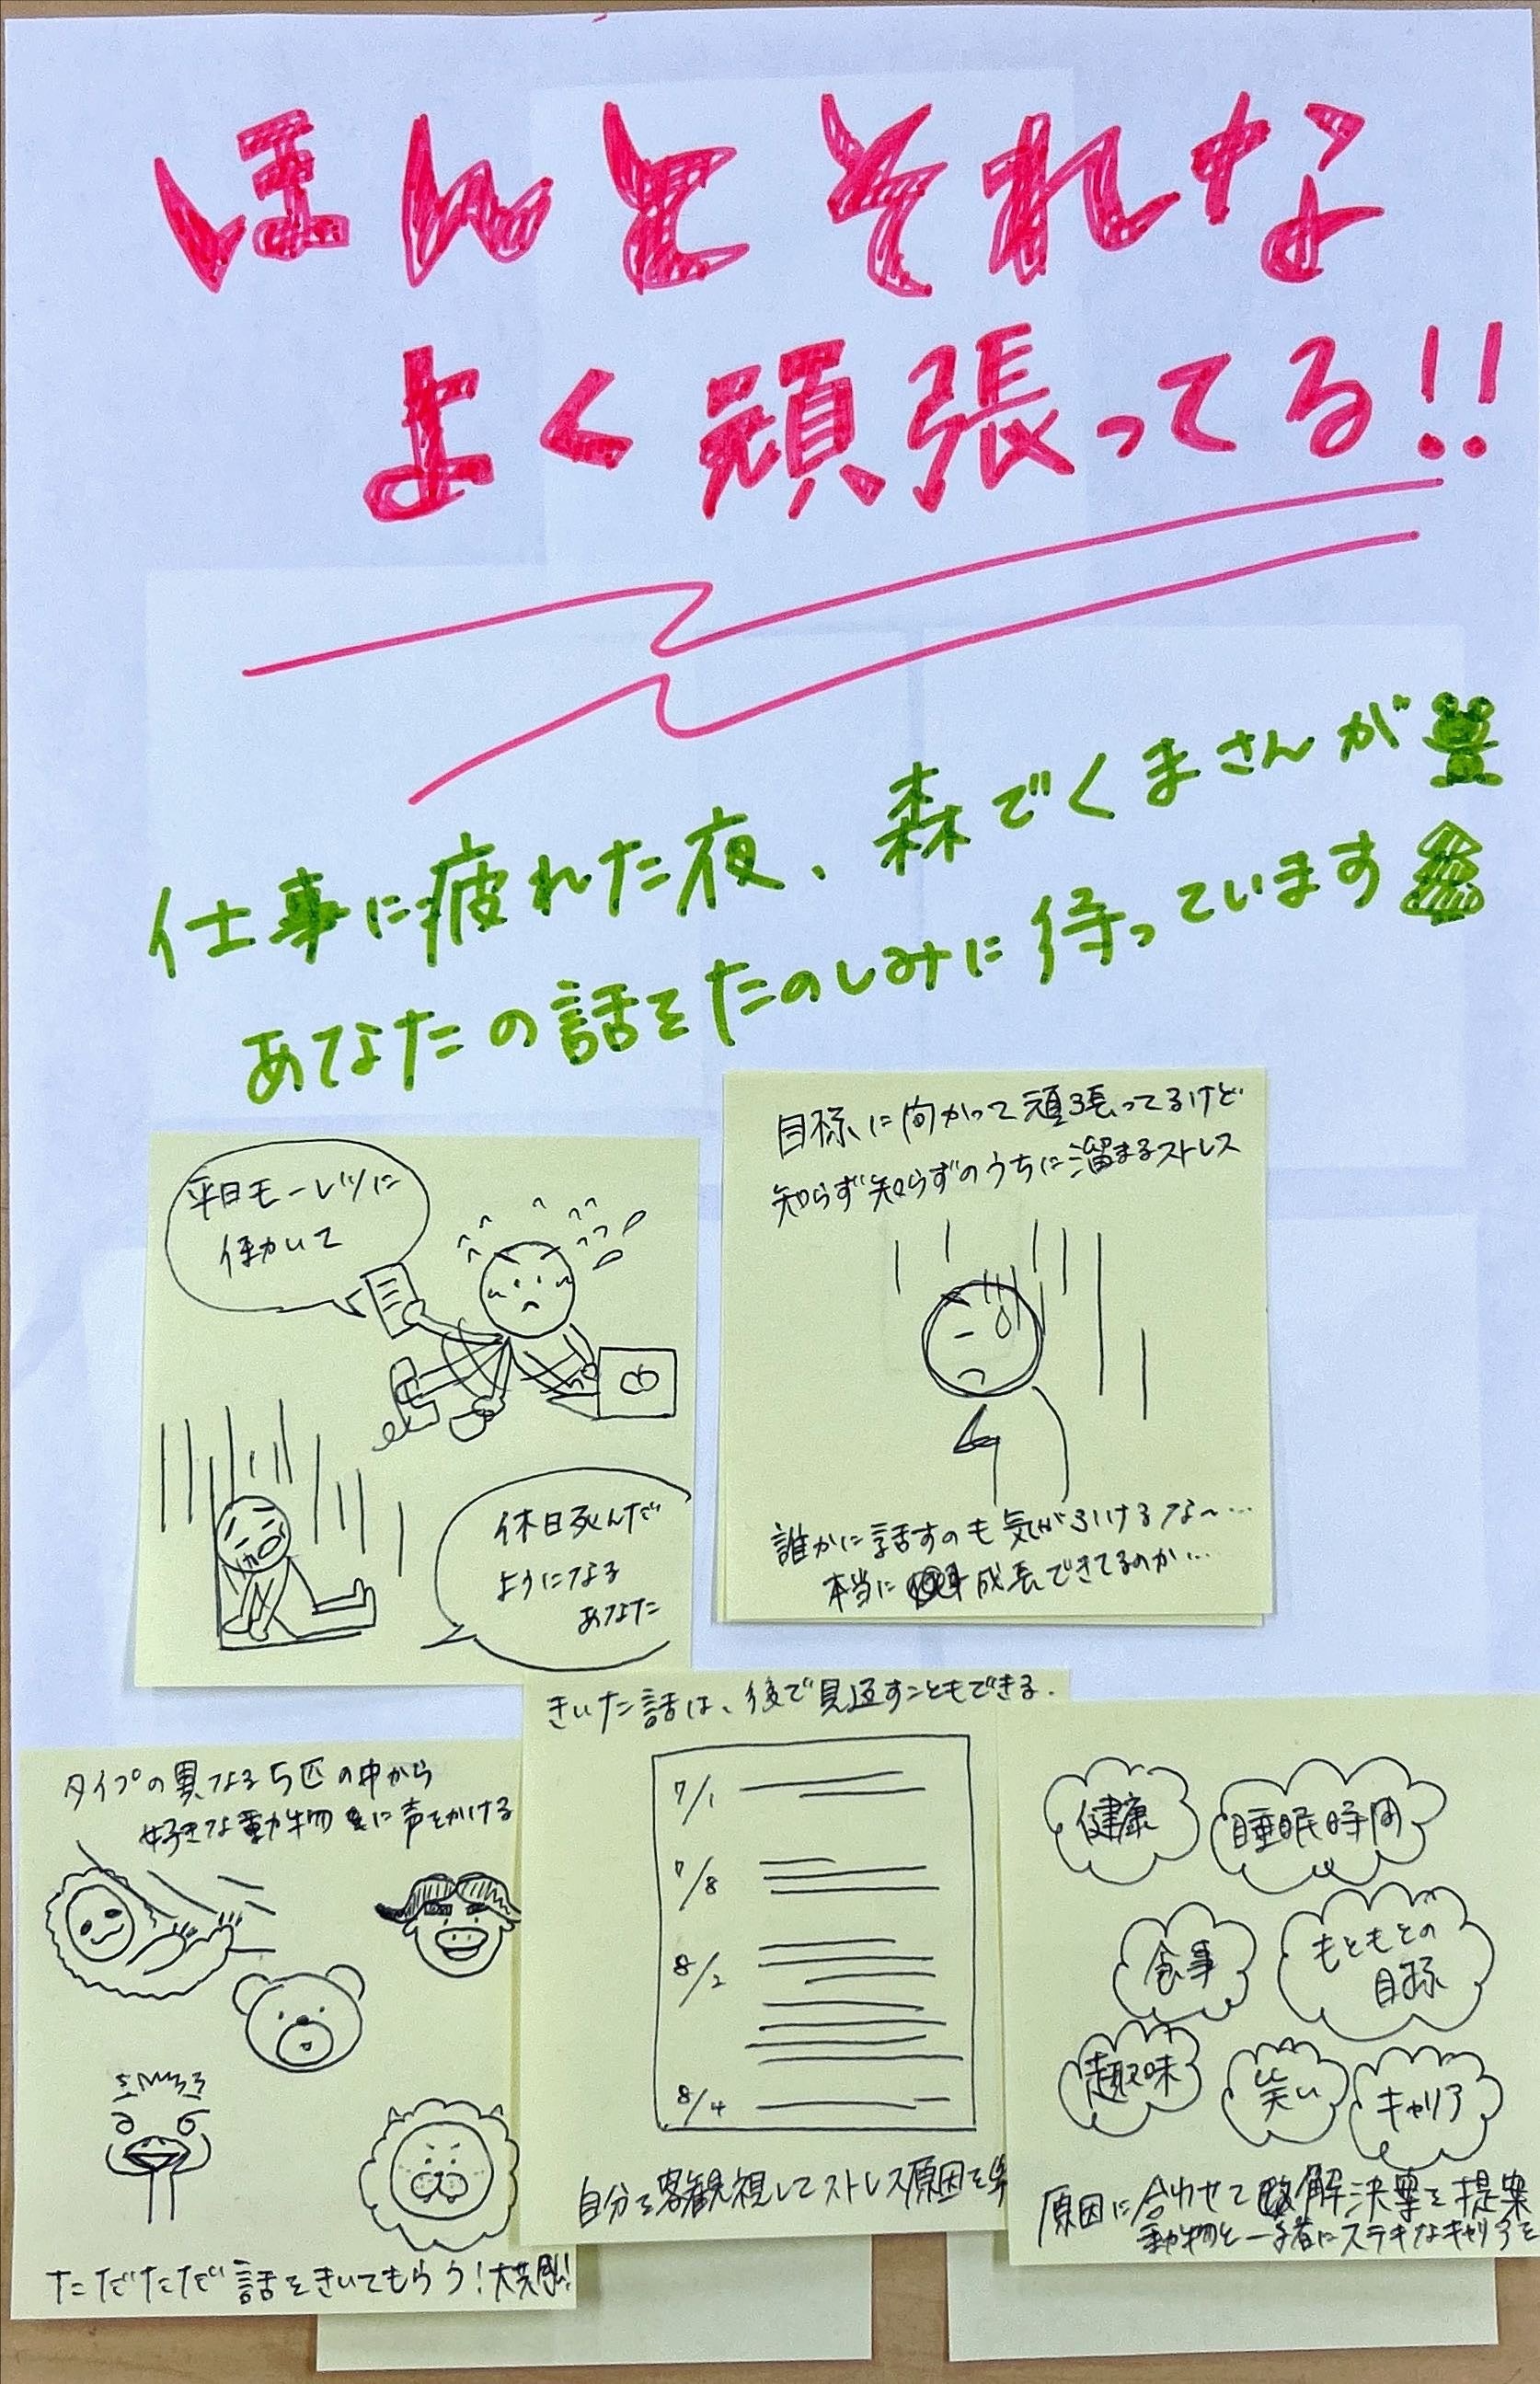 ほんとそれな
よく頑張ってる!!
仕事に疲れた夜、森でくまさんが
あなたの話をたのしみに待っています
平日モーレツに
働いて
休日死んだ
ようになる
あなた
目標に向かって頑張ってるけど
知らず知らずのうちに溜まるストレス
誰かに話すのも気が引けるな〜…
本当に成長できてるのか…
タイプの異なる5匹の中から
好きな動物に声をかける
ただただ話をきいてもらう!大共感!
きいた話は、後で見返すこともできる.
7/1
7/8
8/2
8/4
自分を客観視してストレス原因を
健康
睡眠時間
食事
もともとの
目標
趣味
笑い
キャリア
原因に合わせて解決案を提案
動物と一緒にステキなキャリアを